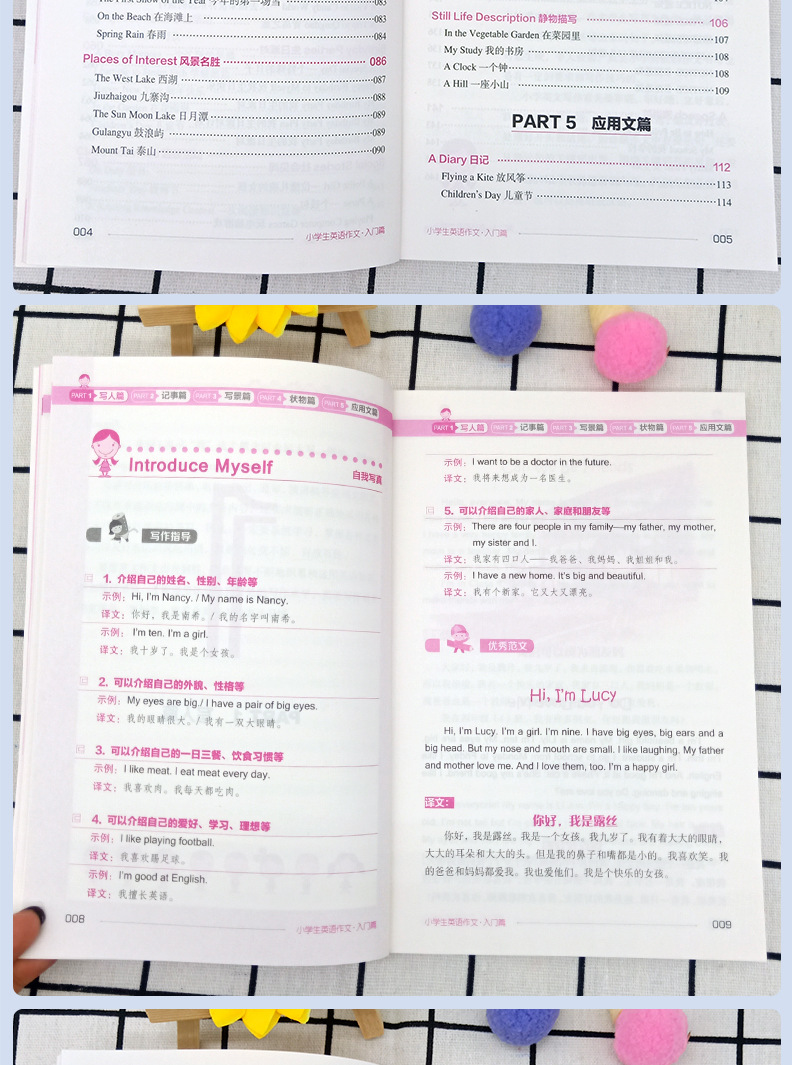 083
On the Beach 在海滩上 083
Spring Rain 春雨 084
Places of Interest 风景名胜 086
The West Lake 西湖 087
Jiuzhaigou 九寨沟 088
The Sun Moon Lake 日月潭 089
Gulangyu 鼓浪屿 089
Mount Tai 泰山 090
004
小学生英语作文·入门篇
Still Life Description 静物描写 106
In the Vegetable Garden 在菜园里 107
My Study 我的书房 108
A Clock 一个钟 108
A Hill 一座小山 109
PART 5 应用文篇
A Diary 日记 112
Flying a Kite 放风筝 113
Children's Day 儿童节 114
小学生英语作文·入门篇
005
PART 1 写人篇 PART 2 记事篇 PART 3 写景篇 PART 4 状物篇 PART 5 应用文篇
Introduce Myself
自我写真
写作指导
1. 介绍自己的姓名、性别、年龄等
示例：Hi, I'm Nancy. / My name is Nancy.
译文：你好，我是南希。/ 我的名字叫南希。
示例：I'm ten. I'm a girl.
译文：我十岁了。我是个女孩。
2. 可以介绍自己的外貌、性格等
示例：My eyes are big./ I have a pair of big eyes.
译文：我的眼睛很大。/ 我有一双大眼睛。
3. 可以介绍自己的一日三餐、饮食习惯等
示例：I like meat. I eat meat every day.
译文：我喜欢肉。我每天都吃肉。
4. 可以介绍自己的爱好、学习、理想等
示例：I like playing football.
译文：我喜欢踢足球。
示例：I'm good at English.
译文：我擅长英语。
008
小学生英语作文·入门篇
PART 1 写人篇 PART 2 记事篇 PART 3 写景篇 PART 4 状物篇 PART 5 应用文篇
示例：I want to be a doctor in the future.
译文：我将来想成为一名医生。
5. 可以介绍自己的家人、家庭和朋友等
示例：There are four people in my family—my father, my mother,
my sister and I.
译文：我家有四口人——我爸爸、我妈妈、我姐姐和我。
示例：I have a new home. It's big and beautiful.
译文：我有个新家。它又大又漂亮。
优秀范文
Hi, I'm Lucy
Hi, I'm Lucy. I'm a girl. I'm nine. I have big eyes, big ears and a
big head. But my nose and mouth are small. I like laughing. My father
and mother love me. And I love them, too. I'm a happy girl.
译文：
你好，我是露丝
你好，我是露丝。我是一个女孩。我九岁了。我有着大大的眼睛，
大大的耳朵和大大的头。但是我的鼻子和嘴都是小的。我喜欢笑。我
的爸爸和妈妈都爱我。我也爱他们。我是个快乐的女孩。
小学生英语作文·入门篇
009